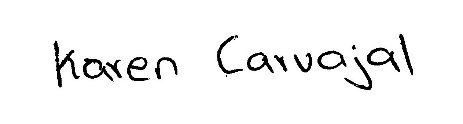 Karen Carvajal